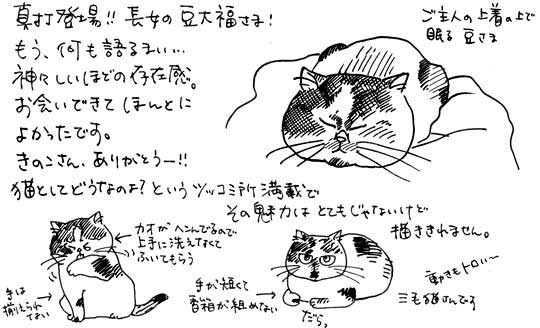 真打登場!! 長女の豆大福さま!
もう、何も語るまい…
神々しいほどの存在感。
お会いできて ほんとに
よかったです。
きのこさん、ありがとうー!!
猫としてどうなのよ?というツッコミ所満載で
その魅力はとてもじゃないけど
描ききれません。
ご主人の上着の上で
眠る 豆さま
カオがヘコんでるので
上手に洗えなくて
ふいてもらう
手は
揃えられ
てない
手が短くて
香箱が組めない
だらっ
動きもトロい〜
三毛猫さんです